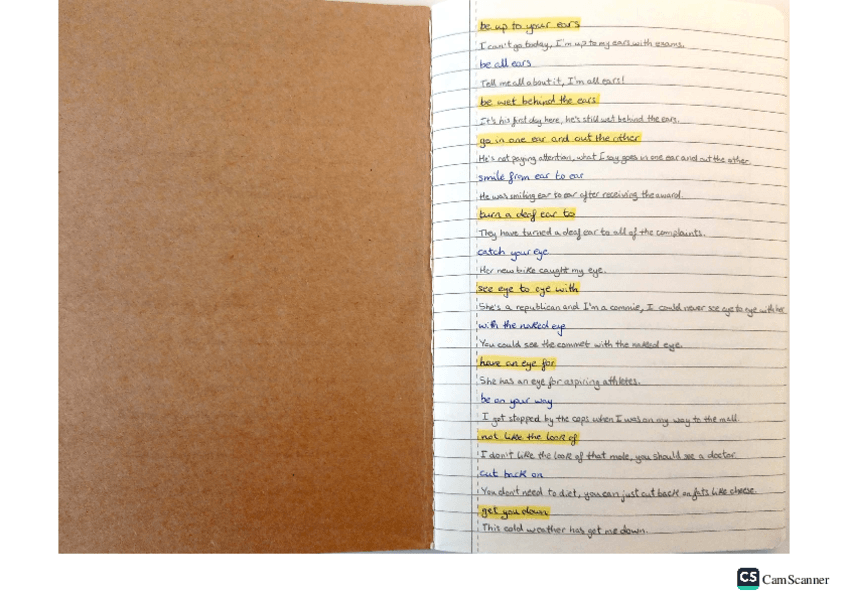 be up to your ears
I can't go today, I'm up to my ears with exams.
be all ears
Tell me all about it, I'm all ears!
be wet behind the ears
It's his first day here, he's still wet behind the ears.
go in one ear and out the other
He's not paying attention, what I say goes in one ear and out the other
smile from ear to ear
He was smiling ear to ear after receiving the award.
turn a deaf ear to
They have turned a deaf ear to all of the complaints.
catch your eye
Her new bike caught my eye.
see eye to eye with
She's a republican and I'm a commie, I could never see eye to eye with her
with the naked eye
You could see the commet with the naked eye.
have an eye for
She has an eye for aspiring athletes.
be on your way
I got stopped by the cops when I was on my way to the mall.
not like the look of
I don't like the look of that mole, you should see a doctor.
cut back on
You don't need to diet, you can just cut back on fats like cheese.
get you down
This cold weather has got me down.
CS CamScanner